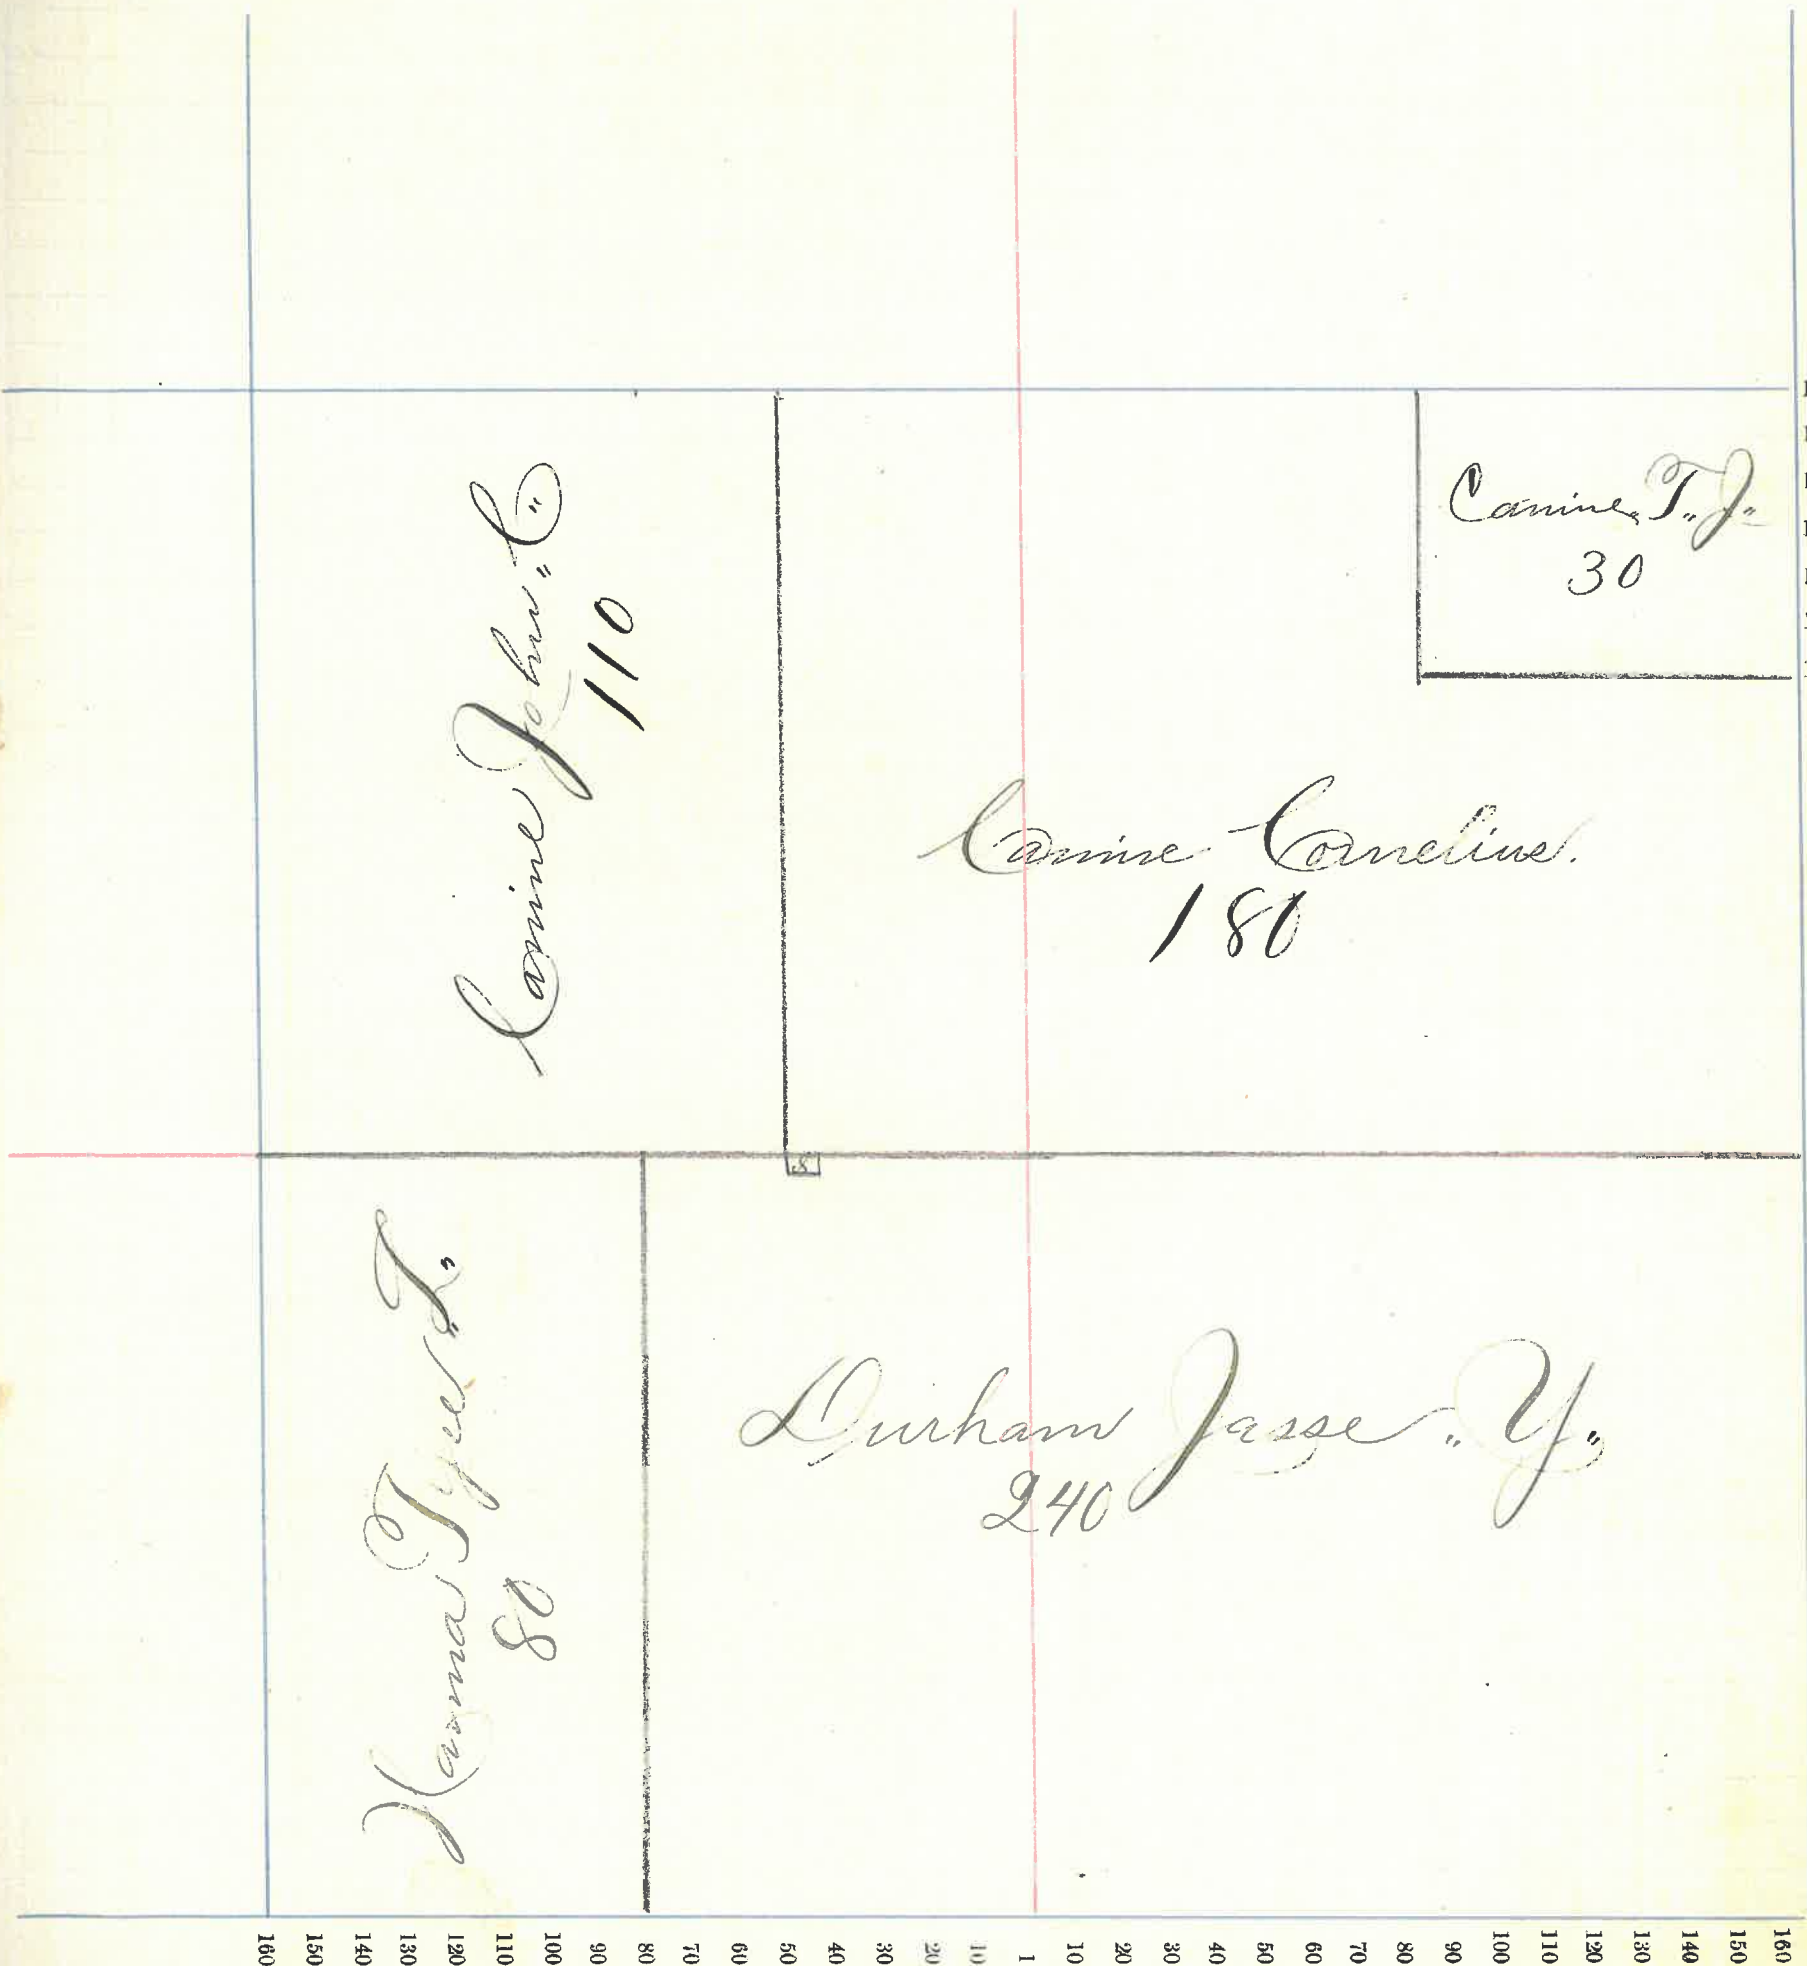 Canine„ T„ J„
30
Canine John „C„
110
Canine Cornelius.
180
S
Hanna Tyre „T„
80
Durham Jasse „Y„
240
160 150 140 130 120 110 100 90 80 70 60 50 40 30 20 10 1 10 20 30 40 50 60 70 80 90 100 110 120 130 140 150 160